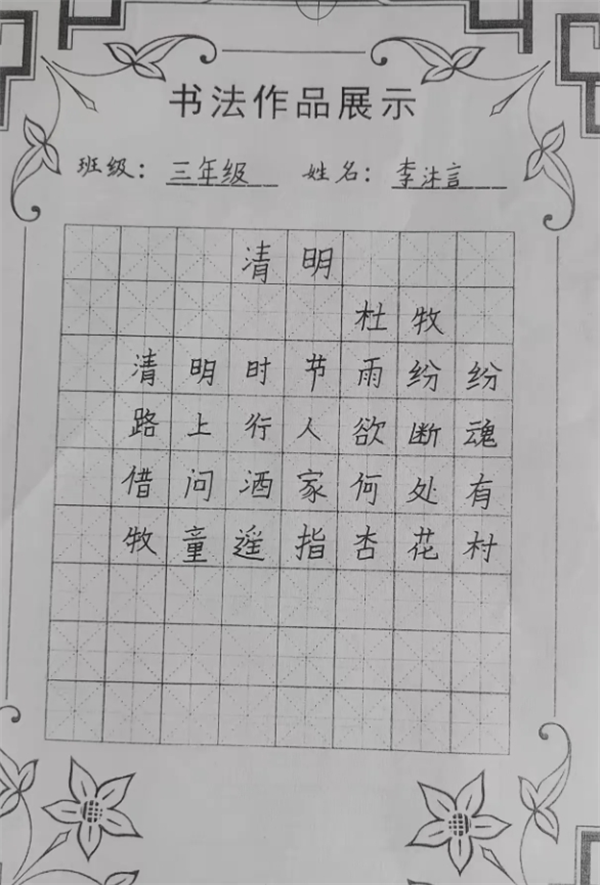 书法作品展示
班级：三年级 姓名：李沐言
清明
杜牧
清明时节雨纷纷
路上行人欲断魂
借问酒家何处有
牧童遥指杏花村